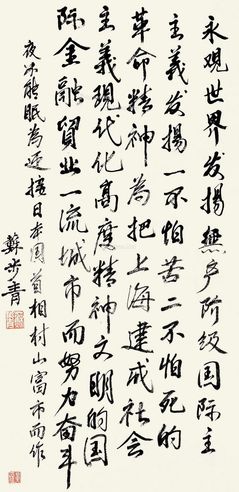 永观世界发揚無产阶级国际主
主義发揚一不怕苦二不怕死的
革命精神為把上海建成社会
主義現代化高度精神文明的国
际金融貿易一流城市而努力奋斗
夜不能眠為迎接日本国首相村山富市而作
蘇步青